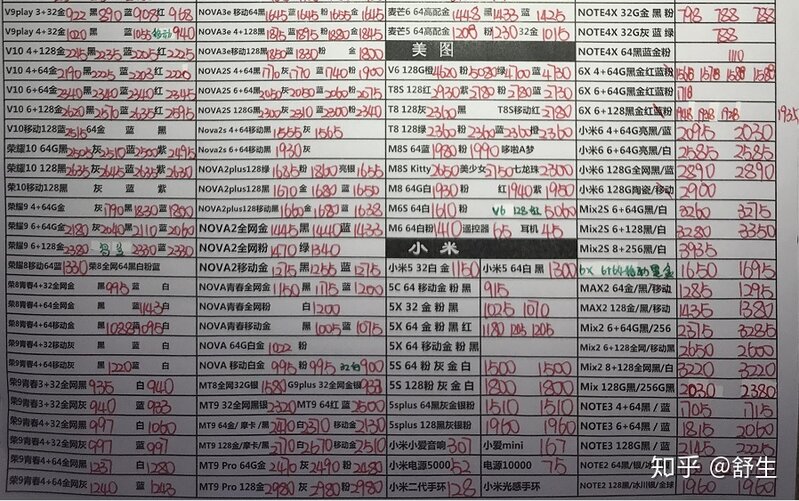 V9play 3+32金 922 黑 890 蓝 908 红 968
V9play 4+32金 1020 黑 蓝 1055 移动 940
V10 4+128金 2215 黑 2235 蓝 2205 红 2225
V10 4+64金 2190 黑 2225 蓝 2203 红 2220
V10 6+64金 2340 黑 2340 蓝 2340 红 2345
V10 6+128金 2620 黑 2570 蓝 2635 红 2695
V10移动128蓝 2515 64金 蓝 黑
荣耀10 64G黑 2505 灰 2510 蓝 2500 紫 2495
荣耀10 128黑 2635 灰 2645 蓝 2635 紫 2630
荣10移动128黑 灰 蓝 紫
荣耀9 4+64金 灰 1790 黑 1830 蓝 1800
荣耀9 6+64金 2180 灰 2040 黑 2110 蓝 2060
荣耀9 6+128金 2380 黑 2330 蓝 2330
荣耀8移动64蓝 1330 荣8全网64黑白粉蓝
荣8青春4+32全网金 黑 995 蓝 白
荣8青春4+64全网金 黑 蓝 1143 白
荣8青春4+64移动金 黑 1088 蓝 1095 白
荣9青春4+32移动灰 黑 蓝 白
荣9青春4+64移动灰 黑 1220 蓝 白
荣9青春3+32全网黑 935 白 940
荣9青春3+32全网灰 940 蓝 933
荣9青春4+32全网黑 997 白 1060
荣9青春4+32全网灰 997 蓝 997
荣9青春4+64全网黑 1237 白 1280
荣9青春4+64全网灰 1240 蓝 1243
NOVA3e移动64黑 1645 粉 1655 金 1645
NOVA3e 4+128黑 1895 粉 1880 金 1845
NOVA3e移动128黑 1850 粉 金 1800
NOVA2S 4+64黑 1770 灰 1770 蓝 1740 粉 1900
NOVA2S 6+64黑 2050 灰 2050 蓝 2060 粉 2075
NOVA2S 128G黑 2300 灰 2310 蓝 2300 粉 2340
Nova2s 4+64移动黑 1555 灰 1565
Nova2s 6+64移动黑 1930 灰
NOVA2plus128绿 1635 粉 1860 亮银 1655
NOVA2plus128黑 1670 金 1680 蓝 1650
NOVA2plus128移动黑 1660 金 1680 蓝 1638
NOVA2全网金 1445 黑 1440 蓝 1433
NOVA2全网粉 1470 绿 1340
NOVA2移动金 1275 黑 1255 蓝 1275
NOVA青春全网金 1150 黑 1175 蓝 1200
NOVA青春全网粉 白 1200
NOVA青春移动金 黑 1005 蓝 1075
NOVA 64G白金 1022 粉
NOVA 移动白金 995 粉 995 32白 900
MT8全网32G银 1580 G9plus 32全网金银 933
MT9 32全网黑银 2320 MT9 64 红 蓝 2500
MT9 64金/ 摩卡 / 黑 2470 白 2370 移动金 2130
MT9 128金/ 摩卡/黑 2770 白 2670 移动金 2510
MT9 Pro 64G金 2470 灰 2490 粉 2480
MT9 Pro 128金 2980 灰 2980 粉 2980
麦芒6 64高配金 1448 黑 1433 蓝 1425
麦芒5 64高配金 1208 粉 1230 32金 1015
美 图
V6 128G橙 4620 粉 5080 绿 4700 蓝 4730
T8S 128红 2930 紫 2780 蓝 2780 粉 2780
T8 128灰 2360 黑 T8S移动红 2780
T8 128绿 2360 粉 2360 蓝 2360 橙 2360
M8S 64蓝 1980 粉 1990 哆啦A梦
M8S Kitty 2650 美少女 2750 七龙珠 2300
M8 64G白 1930 粉 红 1940 紫 1950
M6S 64白 1610 粉 V6 128红 5060
M6 64白粉 1410 遥控器 65 耳机 45
小 米
小米5 32白 金 1150 小米5 64白 黑 1300
5C 64移动金 粉 黑 915
5X 32 金 粉 黑 1025 1070
5X 64 金 粉 黑 红 1180 1205 1205
5X 64 移动金 粉 黑
5S 64 粉 灰 金 白 1500 1500
5S 128粉 灰 金 白 1800 1800
5splus 64黑灰金银粉 1510 1510
5splus 128黑灰金银粉 1960 1960
小米小爱音响 307 小爱mini 167
小米电源5000 52 电源10000 75
小米二代手环 128 小米光感手环
NOTE4X 32G金 黑 粉 798 788 788
NOTE4X 32G灰 蓝 绿 788
NOTE4X 64黑蓝金粉 1110
6X 4+64G黑金红蓝粉 1568 1578 1588 1588
6X 6+64G黑金红蓝粉 1718
6X 6+128黑金红蓝粉 1938 1938 1928 1935
小米6 4+64G亮黑/蓝 2095 2030
小米6 6+64G亮黑/蓝 2585 2585
小米6 128G全网黑/蓝 2890 2890
小米6 128G陶瓷/移动 2900
Mix2S 6+64G黑/白 3260 3275
Mix2S 6+128G黑/白 3280 3350
Mix2S 8+256黑/白 3935
6X 6+64移动黑金 1650 1695
MAX2 64金/黑/移动 1285 1295
MAX2 128金/黑/移动 1435 1380
Mix2 6+64G黑/256 2375 3285
Mix2 6+128全网/移动黑 2650 2600
Mix2 8+128全网黑/白 3220 3220
Mix 128G黑/256G黑 2030 2380
NOTE3 4+64黑 / 蓝 1705 1715
NOTE3 6+64黑 / 蓝 1815 2060
NOTE3 128G黑 / 蓝 2145 2225
NOTE2 64黑/银/ 
NOTE2 128黑/冰川银/全球 1960 1960
知乎 @舒生